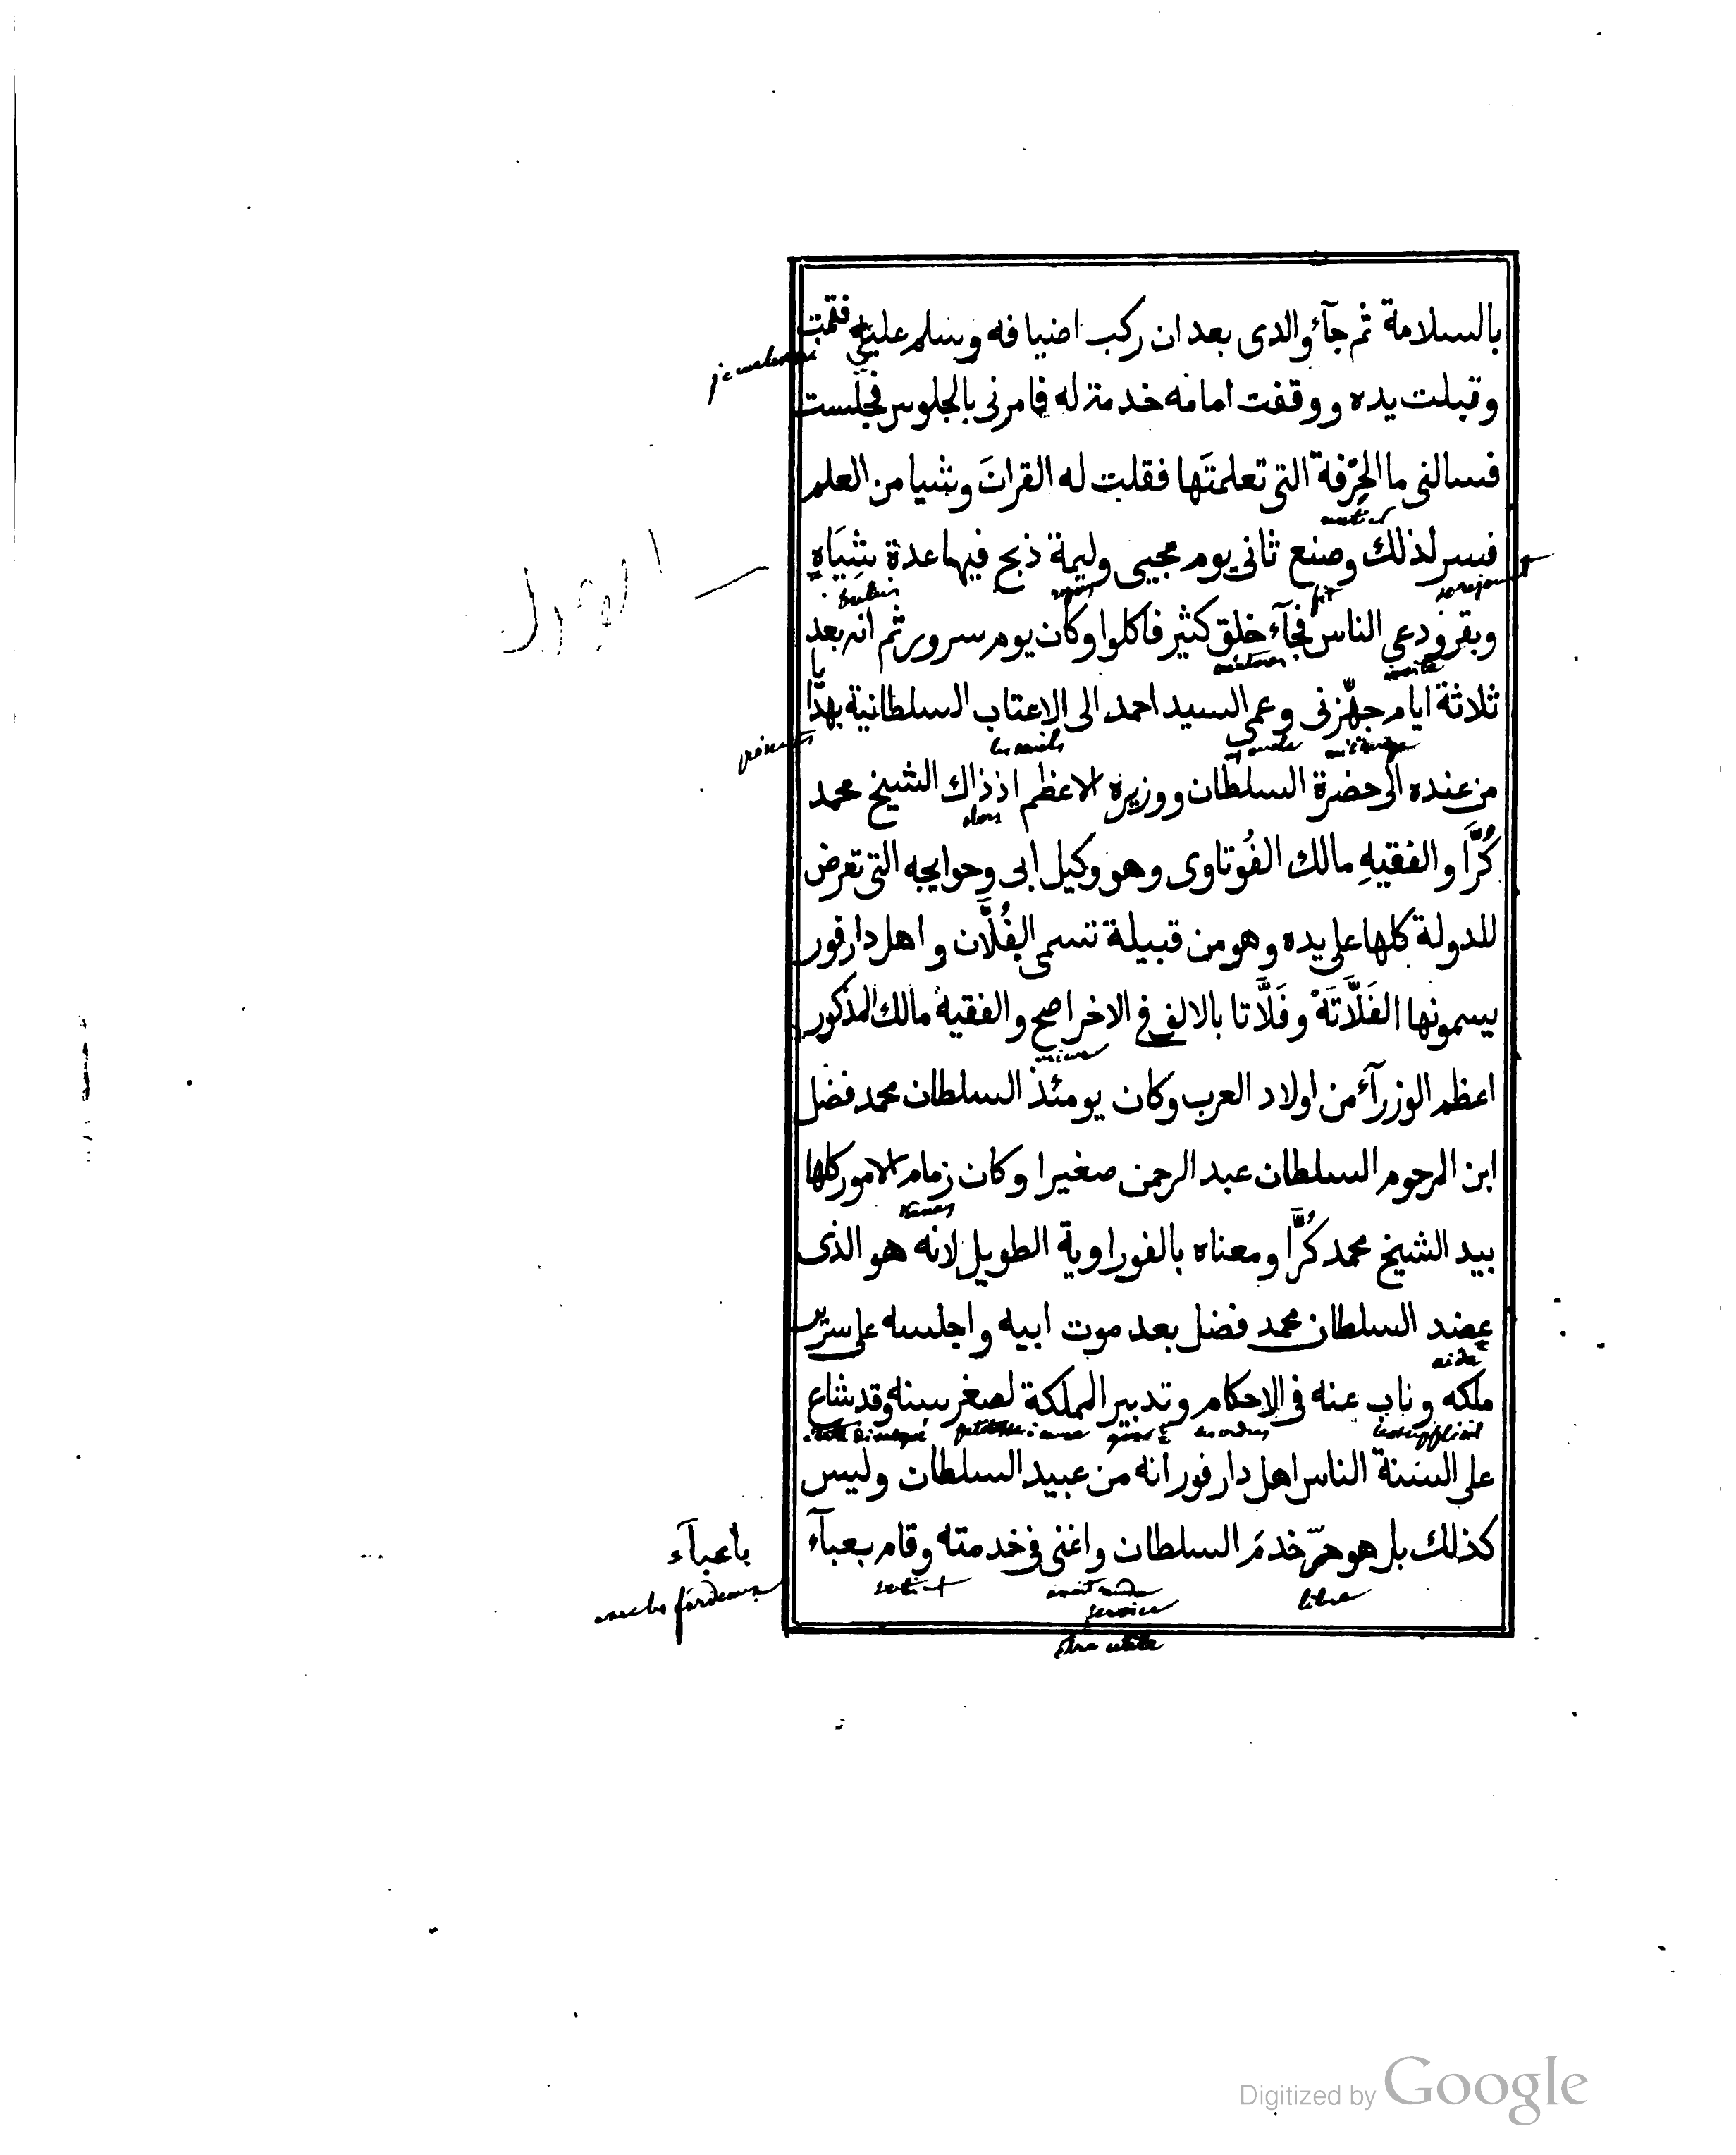 بالسلامة ثم جآء والدى بعد ان ركب اضيافه وسلم على فقمت
وقبلت يده ووقفت امامه خدمة له فامرنى بالجلوس فجلست
فسالنى ما الحِرْفة التى تعلمتَها فقلت له القرانَ وشيا من العلم
métier
فسر لذلك وصنع ثانى يوم مجيى وليمة ذبح فيها عدة شِيَاهٍ
fit
repas
وبقر ودعى الناس فجآء خلق كثير فاكلوا وكان يوم سرور ثم انه بعد
ثلاثة ايام جهّزنى وعمى السيد احمد الى الاعتاب السلطانية بهدايا
من عنده الى حضرة السلطان ووزيره الاعظم اذ ذاك الشيخ محمد
alors
كُرَّا والفقيهِ مالك الفُوتاوى وهو وكيل ابى وحوايجه التى تعرض
للدولة كلها على يده وهو من قبيلة تسمى الفُلَّان واهل دار فور
يسمونها الفَلَّاتَهْ وفَلَّاتا بالالف فى الاخر اصح والفقيه مالك المذكور
اعظم الوزرآء من اولاد العرب وكان يومئذ السلطان محمد فضل
ابن المرحوم السلطان عبد الرحمن صغيرا وكان زمام الامور كلها
بيد الشيخ محمد كُرَّا ومعناه بالفوراوية الطويل لانه هو الذى
عضد السلطان محمد فضل بعد موت ابيه واجلسه على سرير
aide
ملكه وناب عنه فى الاحكام وتدبير المملكة لصغر سنه وقد شاع
les ordres
على السنة الناس اهل دار فور انه من عبيد السلطان وليس
كذلك بل هو حرّ خدمَ السلطان واغنى فى خدمته وقام بعبآء
باعبآء
libre
avait rendu
service
avec les fardeaux
être utile
Digitized by Google